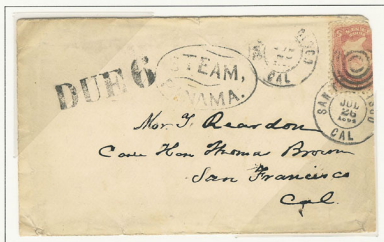 DUE 6
STEAM,
PANAMA.
CAL
SAN FRANCISCO
JUL
26
CAL
Mr T. Reardon
Care Hon Thomas Brown
San Francisco
Cal.